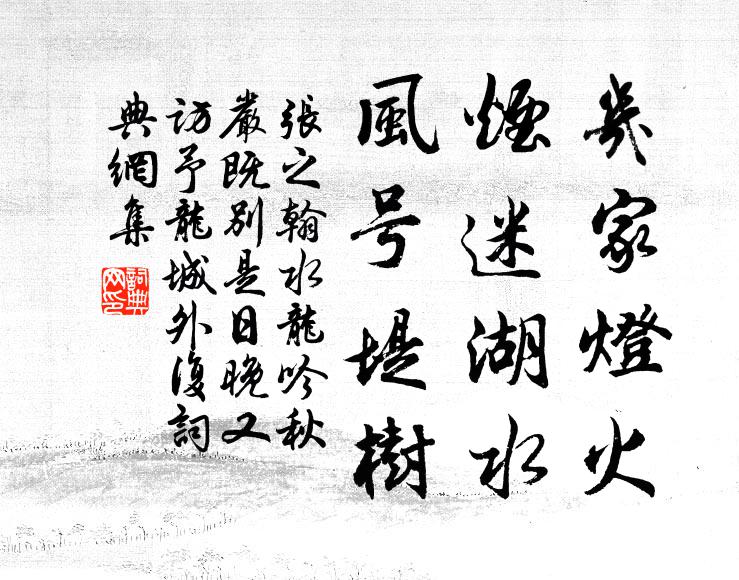 幾家燈火
煙迷湖水
風号堤樹
張之翰水龍吟秋
嚴既別是日晚又
訪予龍城外復詞
典網集
詞典網印